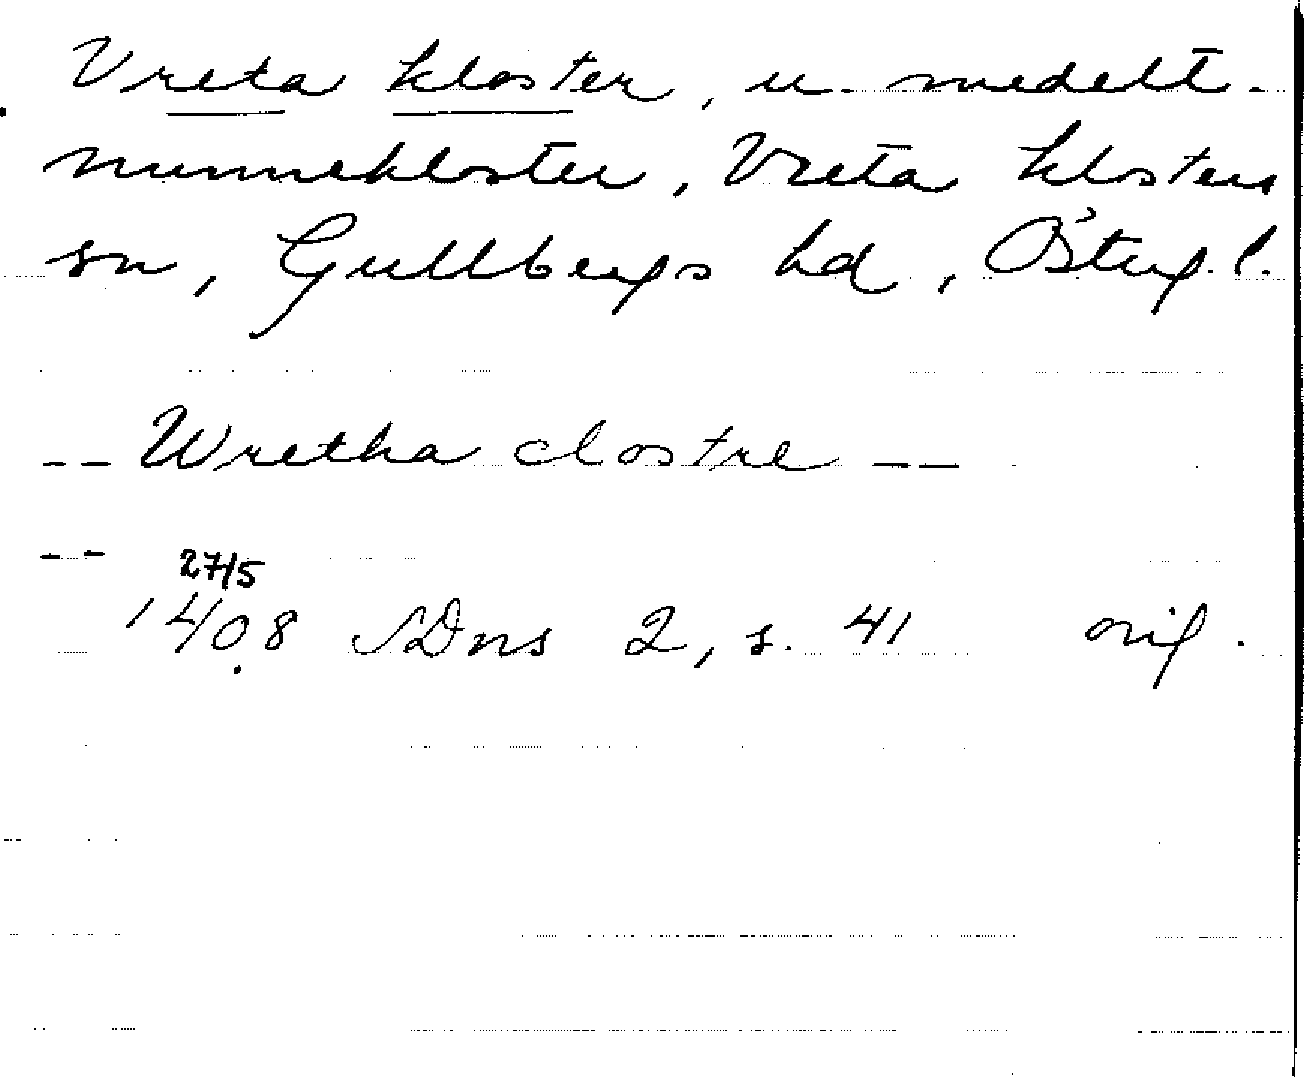 Vreta kloster, u. medelt.
nunnekloster, Vreta klosters
sn, Gullbergs hd, Österg. l.
-- Wretha clostre --
-- 27/5
1408 SDns 2, s. 41 orig.